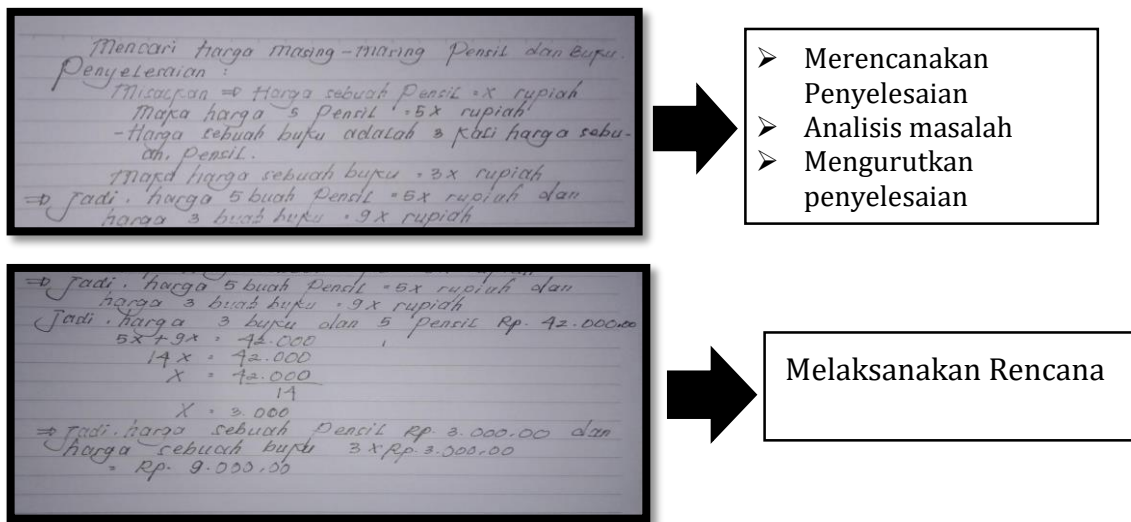 Mencari harga masing-masing Pensil dan Buku.
Penyelesaian :
Misalkan ⇒ Harga sebuah Pensil = x rupiah
Maka harga 5 Pensil = 5x rupiah
- Harga sebuah buku adalah 3 kali harga sebu-
ah, Pensil.
Maka harga sebuah buku = 3x rupiah
⇒ Jadi, harga 5 buah Pensil = 5x rupiah dan
harga 3 buah buku = 9x rupiah
➢ Merencanakan
Penyelesaian
➢ Analisis masalah
➢ Mengurutkan
penyelesaian
⇒ Jadi, harga 5 buah Pensil = 5x rupiah dan
harga 3 buah buku = 9x rupiah
Jadi, harga 3 buku dan 5 pensil Rp. 42.000.00
5x + 9x = 42.000
14x = 42.000
x = 42.000
14
x = 3.000
⇒ Jadi, harga sebuah Pensil Rp. 3.000.00 dan
harga sebuah buku 3 x Rp. 3.000.00
= Rp. 9.000.00
Melaksanakan Rencana